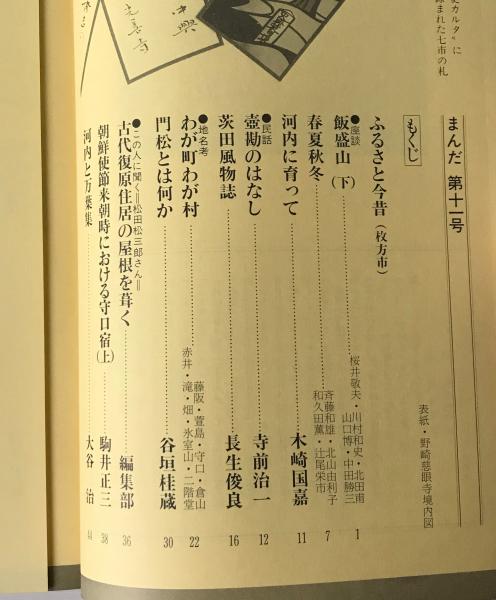 史カルタ〟に
まれた七市の札
中興
元善寺
まんだ 第十一号
表紙・野崎慈眼寺境内図
もくじ
ふるさと今昔(枚方市)
●座談
飯盛山(下) 桜井敬夫・川村和史・北田甫 山口博・中田勝三 1
春夏秋冬 斉藤和雄・北山由利子 和久田薫・辻尾栄市 7
河内に育って 木崎国嘉 11
●民話
壺勘のはなし 寺前治一 12
茨田風物誌 長生俊良 16
●地名考
わが町わが村 藤阪・萱島・守口・倉山 赤井・滝・畑・氷室山・二階堂 22
門松とは何か 谷垣桂蔵 30
●この人に聞く=松田松三郎さん=
古代復原住居の屋根を葺く 編集部 36
朝鮮使節来朝時における守口宿(上) 駒井正三 38
河内と万葉集 大谷治 44